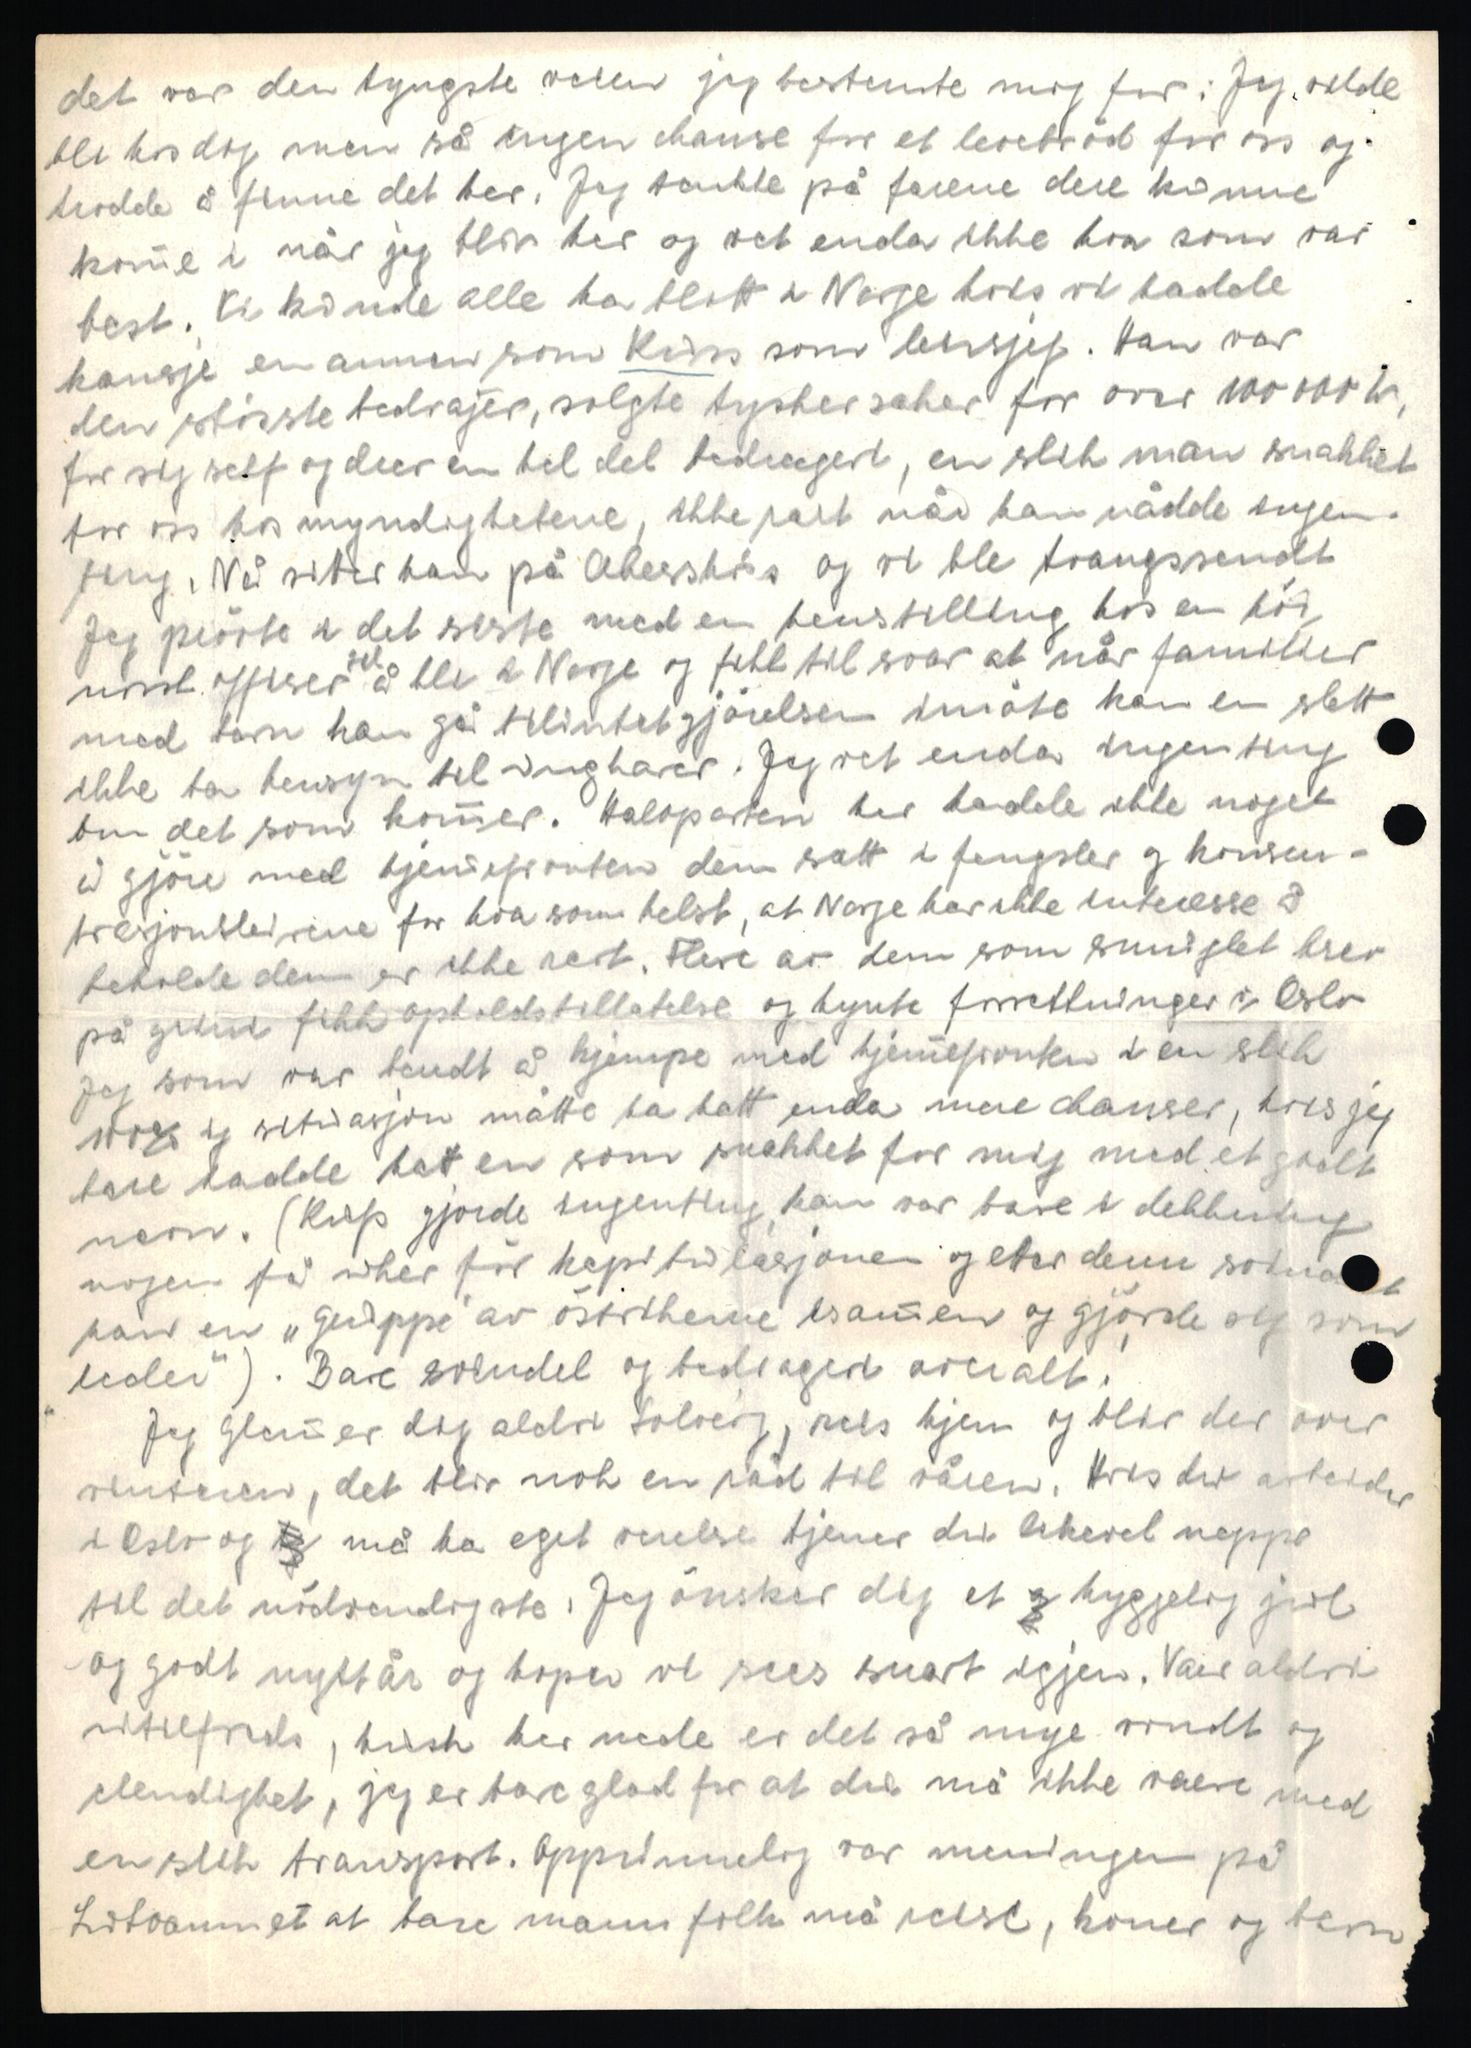 det var den tyngste veien jeg bestemte mig for. Jeg vilde
bli hos dig men så ingen chanse for et levebröd for oss og
trodde å finne det her. Jeg tenkte på farene dere kunne
kom̄e i når jeg blir her og vet enda ikke hva som var
best. Vi kunde alle ha blitt i Norge hvis vi hadde
kansje en annen som Kuss som leirsjef. Han var
den största bedrager, solgte tyskersaker for over 100 000 kr,
for sig self og drev en hel del bedrageri, en slik man snakket
for oss hos myndighetene, ikke rart når han nådde ingen-
ting. Nå sitter han på Akershus og vi ble tvangssendt
Jeg prövte i det siste med en henstilling hos en höi
norsk offiser til å bli i Norge og fikk til svar at når familier
med barn kan gå tilintetgjörelsen imöte kan en slett
ikke ta hensyn til ungkarer. Jeg vet enda ingenting
om det som kom̄er. Halvparten her hadde ikke noget
å gjöre med hjem̄efronten dem satt i fengsler og konsen-
trasjonsleirene for hva som helst, at Norge har ikke interesse å
beholde dem er ikke rart. Flere av dem som smuglet brev
på grini fikk opholdstillatelse og bynte forretninger i Oslo
Jeg som var kendt å kjempe med hjem̄efronten i en slik
situasjon måtte ha hatt enda mere chanser, hvis jeg
bare hadde hatt en som snakket for mig med et godt
navn. (Kuss gjorde ingenting, han var bare i dekkning
nogen få uker för kapitulasjonen og etter denn
han en „gruppe" av östrikerne sam̄en og gjörde sig som
leder"). Bare svindel og bedrageri overalt.
Jeg glem̄er dig aldri Solveig, reis hjem og blir der over
vinteren, det blir nok en råd til våren. Hvis du arbeider
i Oslo og må ha eget verelse tjener du likevel neppe
til det nödvendigste. Jeg önsker dig et hyggelig jul
og godt nyttår og håper vi sees snart igjen. Vær aldri
utilfreds, husk her nede er det så mye vondt og
elendighet, jeg er bare glad for at du må ikke være med
en slik transport. Opprinnelig var meningen på
at bare mannfolk må reise, koner og barn